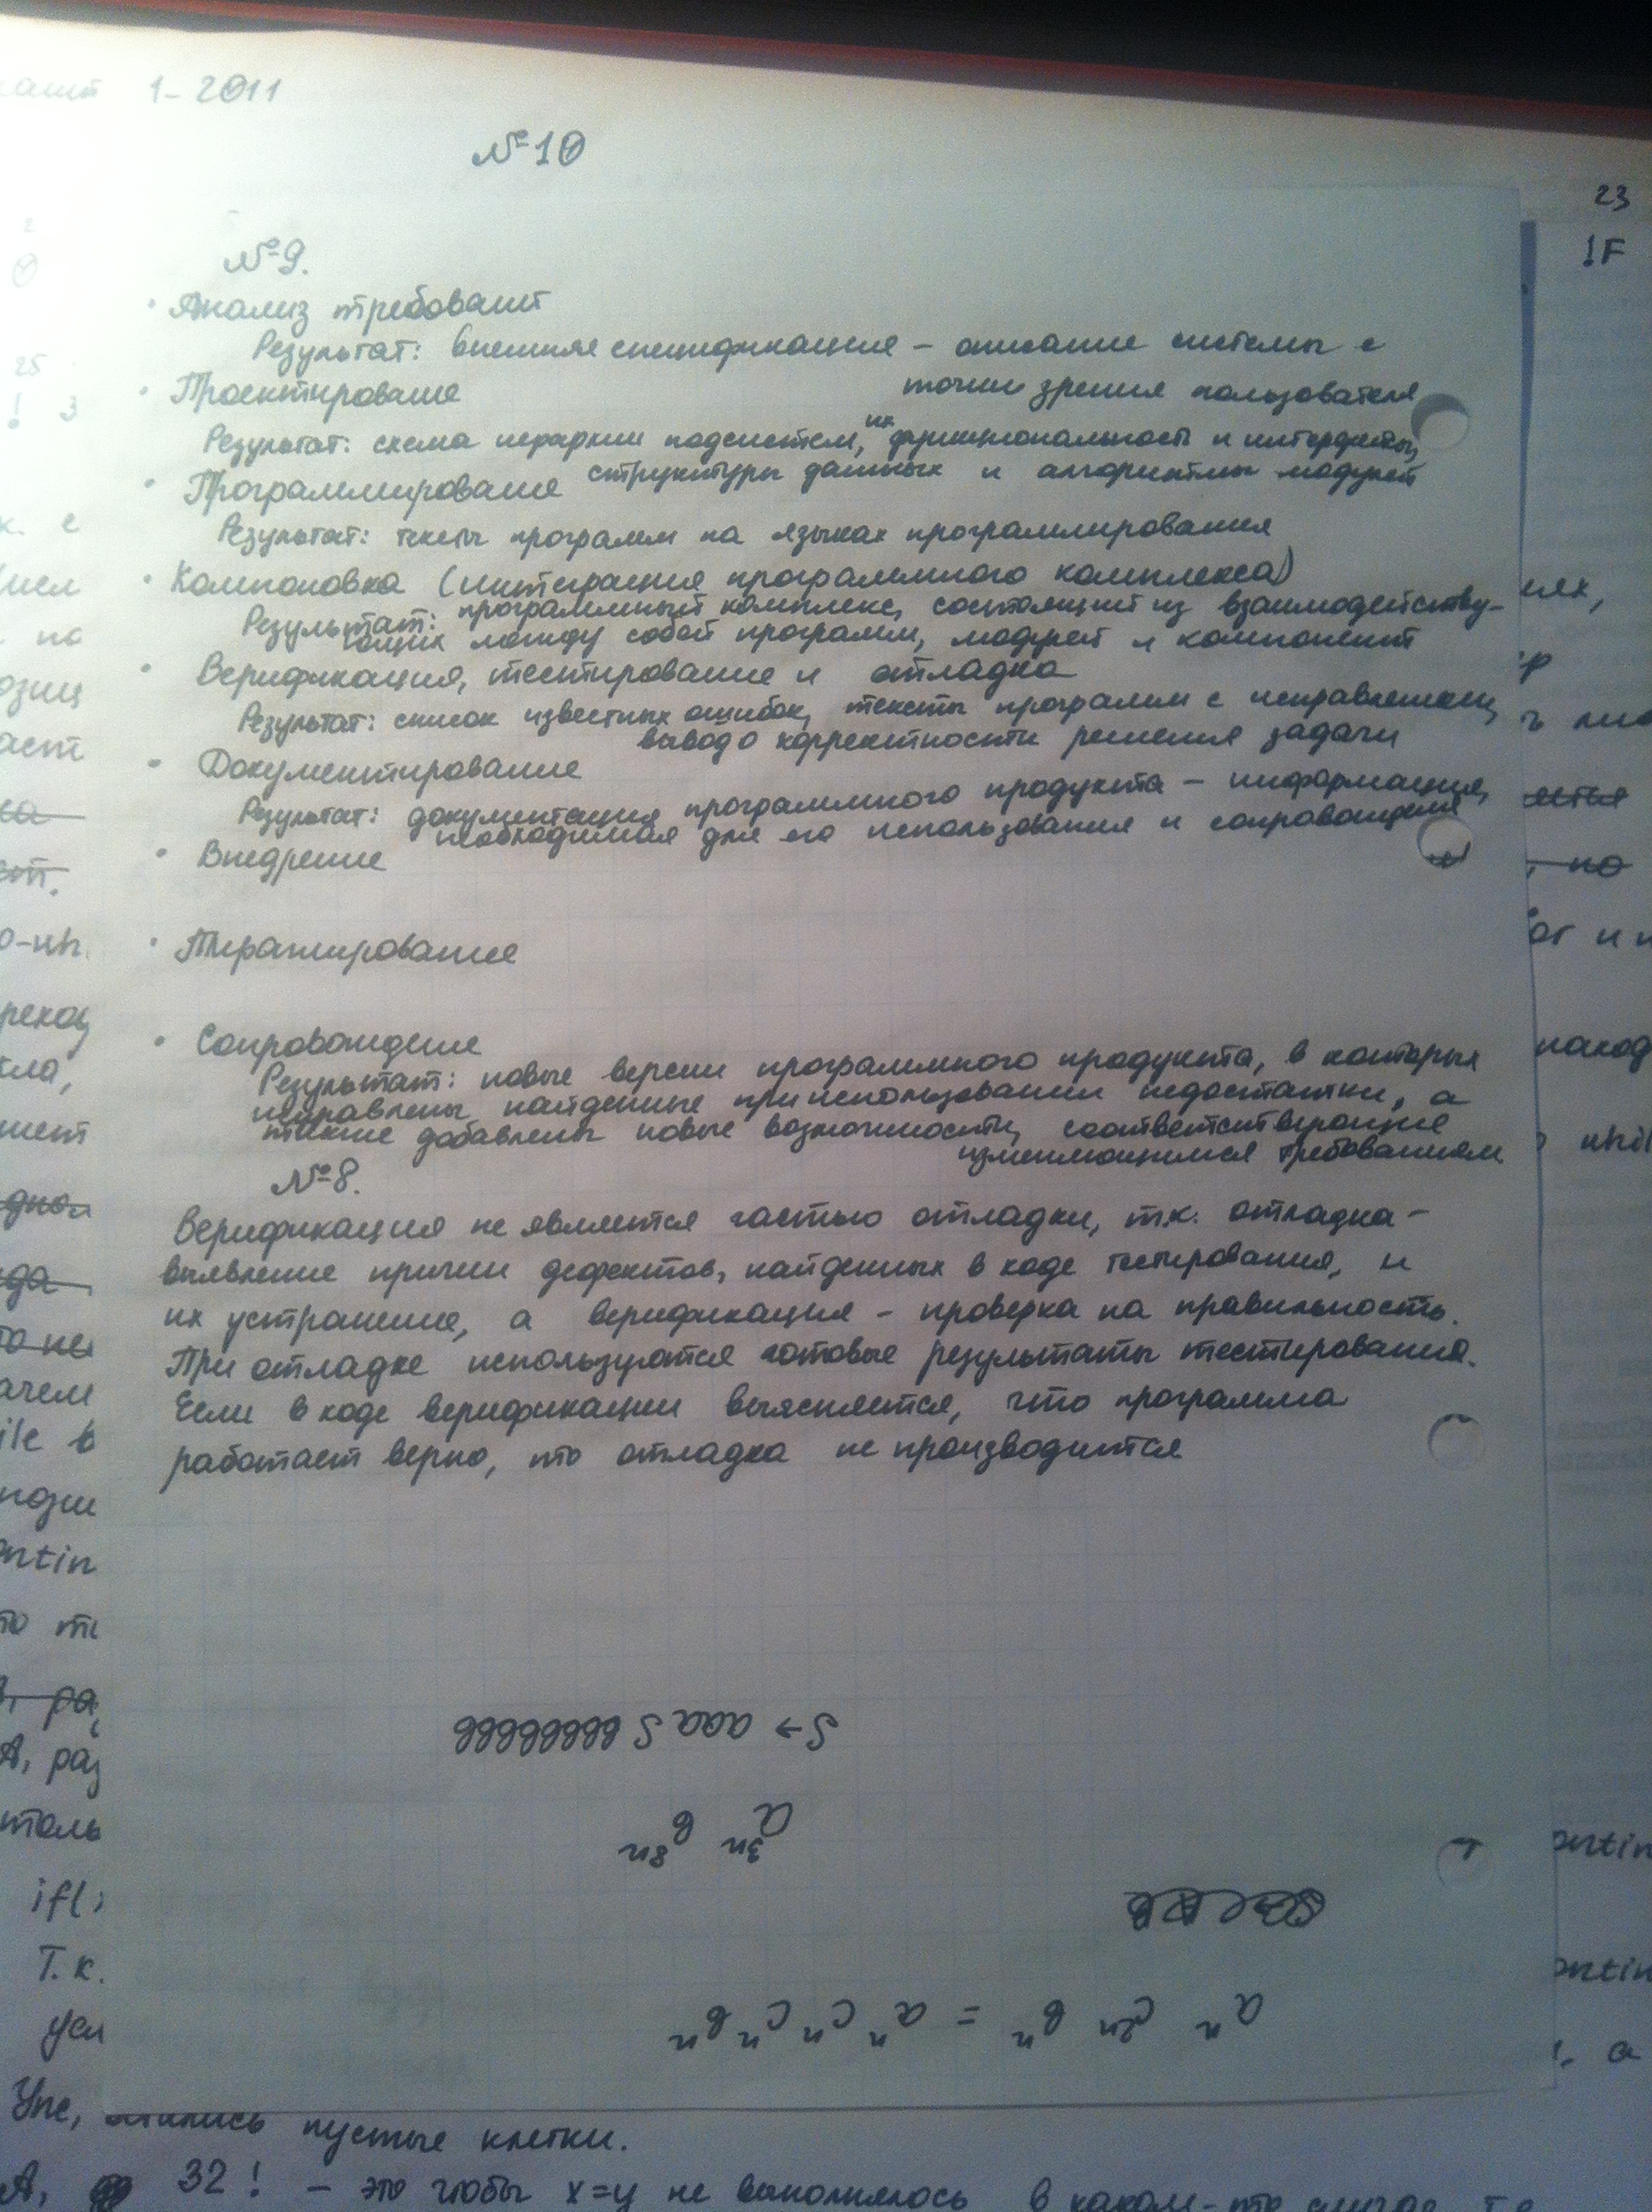 1-2011
№10
23
!F
№9.
• Анализ требований
Результат: внешняя спецификация – описание системы с
точки зрения пользователя
• Проектирование
Результат: схема иерархии подсистем, их функциональность и интерфейсы,
структуры данных и алгоритмы модулей
• Программирование
Результат: тексты программ на языках программирования
• Компоновка (интеграция программного комплекса)
Результат: программный комплекс, состоящий из взаимодейству-
ющих между собой программ, модулей и компонент
• Верификация, тестирование и отладка
Результат: список известных ошибок, тексты программ с исправлениями,
вывод о корректности решения задачи
• Документирование
Результат: документация программного продукта – информация,
необходимая для его использования и сопровождения
• Внедрение
• Тиражирование
• Сопровождение
Результат: новые версии программного продукта, в которых
исправлены найденные при использовании недостатки, а
также добавлены новые возможности, соответствующие
изменяющимся требованиям
№8.
Верификация не является частью отладки, т.к. отладка –
выявление причин дефектов, найденных в ходе тестирования, и
их устранение, а верификация – проверка на правильность.
При отладке используются готовые результаты тестирования.
Если в ходе верификации выясняется, что программа
работает верно, то отладка не производится
S → aaa S bbbbbbbb
a³ⁿ b⁸ⁿ
aⁿ c²ⁿ bⁿ = aⁿ cⁿ cⁿ bⁿ
Упс, остались пустые клетки.
А, 32! – это чтобы x=y не выполнялось в каком-то случае, т.е.